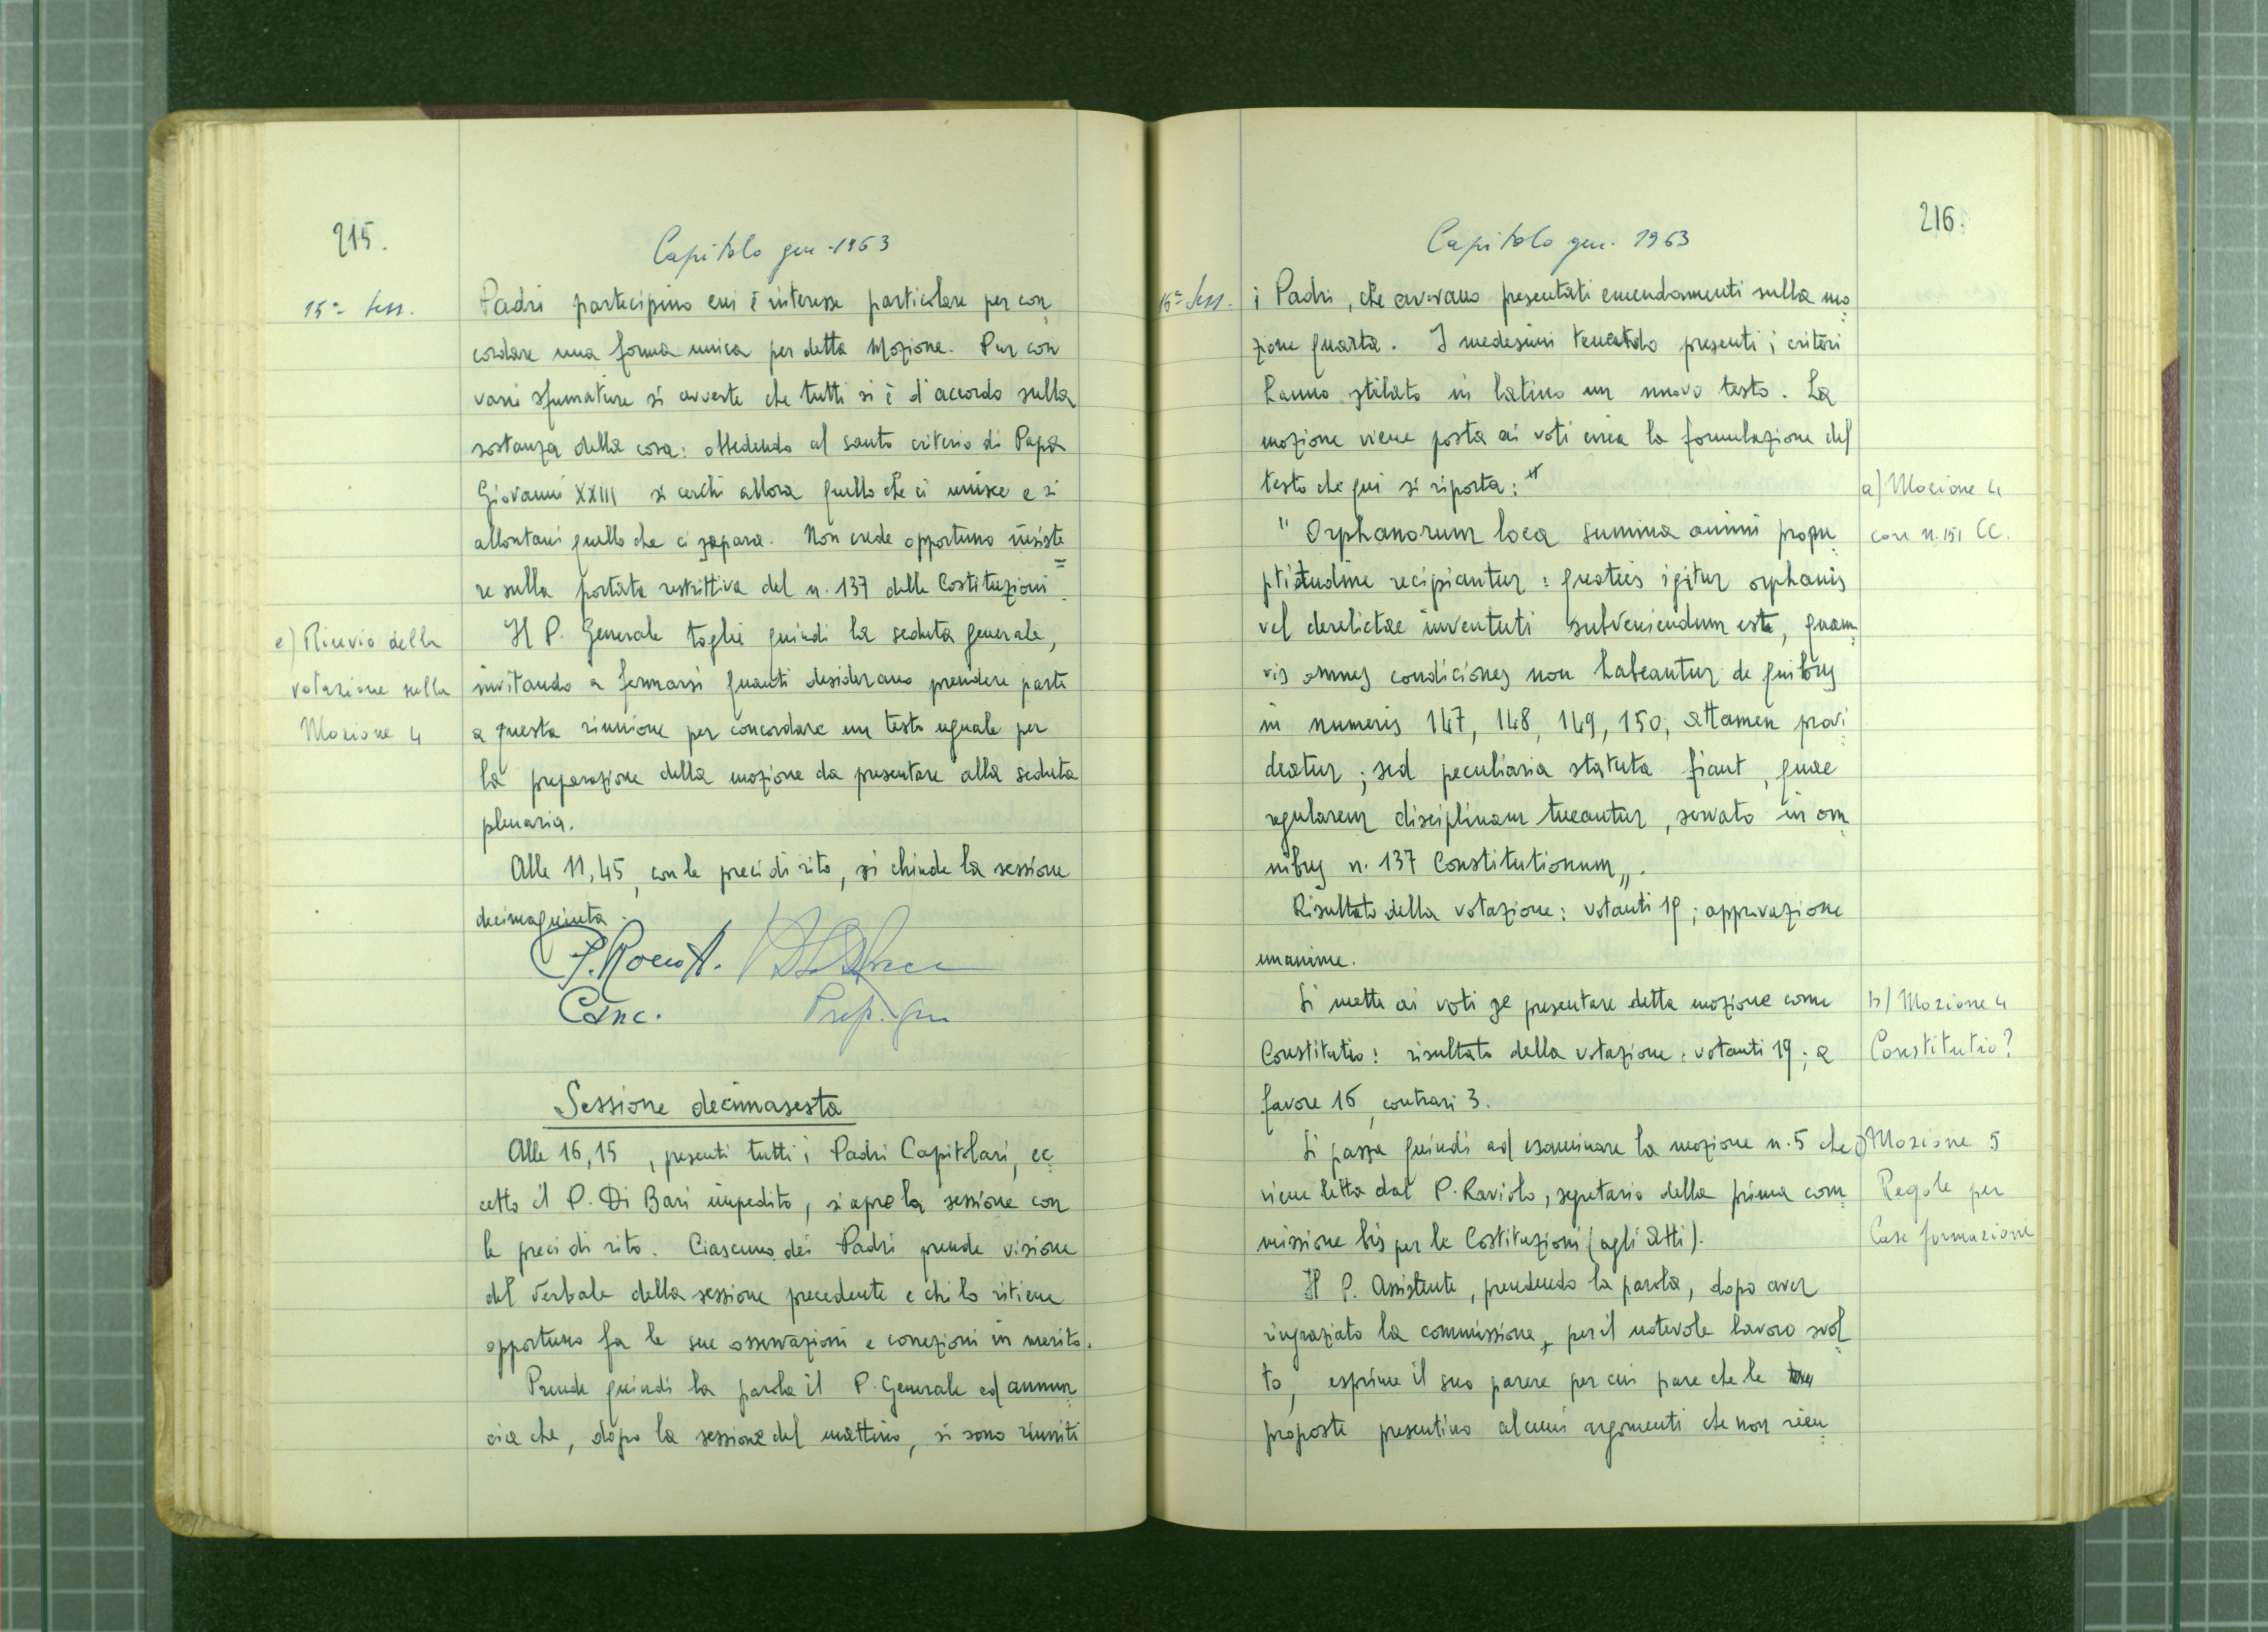 215.
Capitolo gen. 1963
15ª Sess.
Padri partecipino cui è interesse particolare per con
cordare una forma unica per detta Mozione. Pur con
varie sfumature si avverte che tutti si è d'accordo sulla
sostanza della cosa: obbedendo al santo criterio di Papa
Giovanni XXIII si cerchi allora quello che ci unisce e si
allontani quello che ci separa. Non crede opportuno insiste
re sulla portata restrittiva del n. 137 delle Costituzioni.
e) Rinvio della
votazione sulla
Mozione 4
Il P. Generale toglie quindi la seduta generale,
invitando a fermarsi quanti desiderano prendere parte
a questa riunione per concordare un testo uguale per
la preparazione della mozione da presentare alla seduta
plenaria.
Alle 11,45, con le preci di rito, si chiude la sessione
decimaquinta.
P. Rocco A.
Canc.
Prep. gen
Sessione decimasesta
Alle 16,15, presenti tutti i Padri Capitolari, ec
cetto il P. Di Bari impedito, si apre la sessione con
le preci di rito. Ciascuno dei Padri prende visione
del Verbale della sessione precedente e chi lo ritiene
opportuno fa le sue osservazioni e correzioni in merito.
Prende quindi la parola il P. Generale ed annun
cia che, dopo la sessione del mattino, si sono riuniti
216.
Capitolo gen. 1963
16ª Sess.
i Padri, che avevano presentati emendamenti sulla mo
zione quarta. I medesimi tenendo presenti i criteri
hanno stilato in latino un nuovo testo. La
mozione viene posta ai voti circa la formulazione del
testo che qui si riporta:
a) Mozione 4
con n. 151 CC.
" Orphanorum loca summa animi promp
ptitudine recipiantur: quoties igitur orphanis
vel derelictae iuventuti subveniendum est, quam
vis omnes condiciones non habeantur de quibus
in numeris 147, 148, 149, 150, attamen provi
deatur; sed peculiaria statuta fiant, quae
regularem disciplinam tueantur, servato in om
nibus n. 137 Constitutionum„.
Risultato della votazione: votanti 19; approvazione
unanime.
b) Mozione 4
Constitutio?
Si mette ai voti se presentare detta mozione come
Constitutio: risultato della votazione: votanti 19; a
favore 16, contrari 3.
c) Mozione 5
Regole per
Case formazione
Si passa quindi ad esaminare la mozione n. 5 che
viene letta dal P. Raviolo, segretario della prima com
missione bis per le Costituzioni (agli atti).
Il P. Assistente, prendendo la parola, dopo aver
ringraziato la commissione, per il notevole lavoro svol
to, esprime il suo parere per cui pare che le
proposte presentino alcuni argomenti che non rien